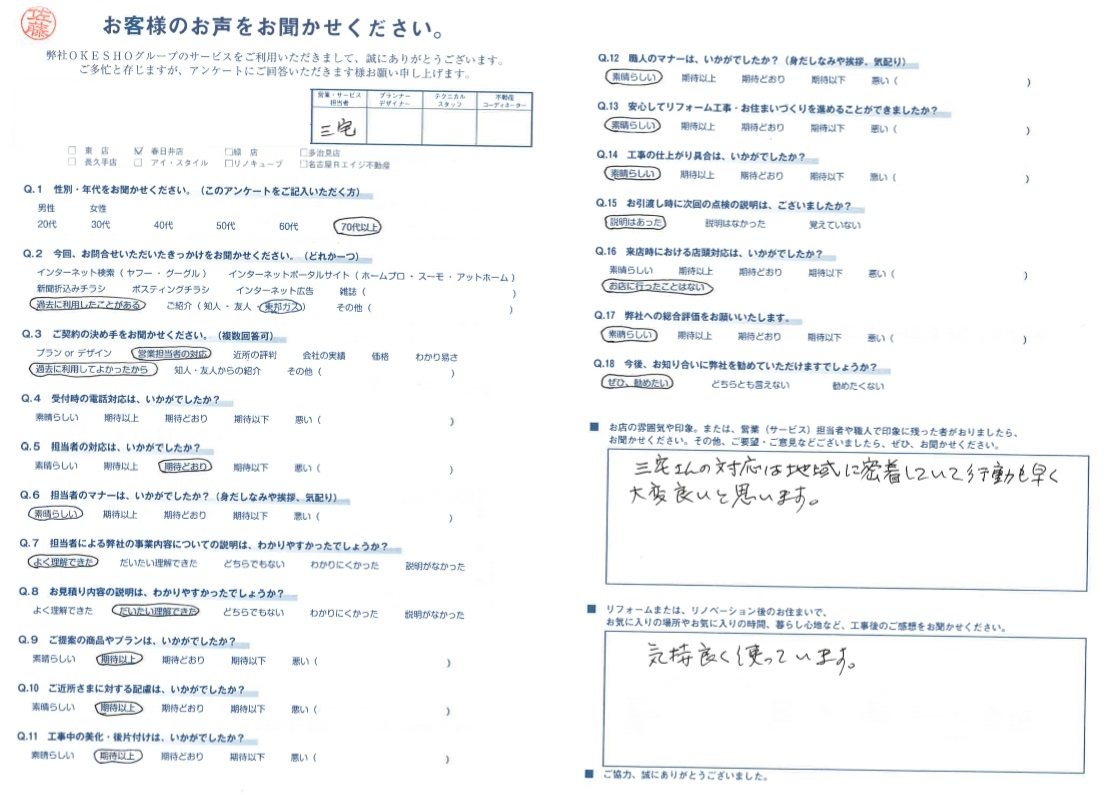 佐藤
お客様のお声をお聞かせください。
弊社ＯＫＥＳＨＯグループのサービスをご利用いただきまして、誠にありがとうございます。
ご多忙と存じますが、アンケートにご回答いただきます様お願い申し上げます。
営業・サービス担当者 プランナーデザイナー テクニカルスタッフ 不動産コーディネーター
三宅
□ 東 店 ☑ 春日井店 □緑 店 □多治見店
□ 長久手店 □ アイ・スタイル □リノキューブ □名古屋Ｒエイジ不動産
Q.1 性別・年代をお聞かせください。（このアンケートをご記入いただく方）
男性 女性
20代 30代 40代 50代 60代 70代以上
Q.2 今回、お問合せいただいたきっかけをお聞かせください。（どれか一つ）
インターネット検索（ ヤフー ・ グーグル ） インターネットポータルサイト（ ホームプロ ・ スーモ ・ アットホーム ）
新聞折込みチラシ ポスティングチラシ インターネット広告 雑誌（ ）
過去に利用したことがある ご紹介（ 知人 ・ 友人 ・ 東邦ガス） その他（ ）
Q.3 ご契約の決め手をお聞かせください。（複数回答可）
プラン or デザイン 営業担当者の対応 近所の評判 会社の実績 価格 わかり易さ
過去に利用してよかったから 知人・友人からの紹介 その他（ ）
Q.4 受付時の電話対応は、いかがでしたか？
素晴らしい 期待以上 期待どおり 期待以下 悪い（ ）
Q.5 担当者の対応は、いかがでしたか？
素晴らしい 期待以上 期待どおり 期待以下 悪い（ ）
Q.6 担当者のマナーは、いかがでしたか？（身だしなみや挨拶、気配り）
素晴らしい 期待以上 期待どおり 期待以下 悪い（ ）
Q.7 担当者による弊社の事業内容についての説明は、わかりやすかったでしょうか？
よく理解できた だいたい理解できた どちらでもない わかりにくかった 説明がなかった
Q.8 お見積り内容の説明は、わかりやすかったでしょうか？
よく理解できた だいたい理解できた どちらでもない わかりにくかった 説明がなかった
Q.9 ご提案の商品やプランは、いかがでしたか？
素晴らしい 期待以上 期待どおり 期待以下 悪い（ ）
Q.10 ご近所さまに対する配慮は、いかがでしたか？
素晴らしい 期待以上 期待どおり 期待以下 悪い（ ）
Q.11 工事中の美化・後片付けは、いかがでしたか？
素晴らしい 期待以上 期待どおり 期待以下 悪い（ ）
Q.12 職人のマナーは、いかがでしたか？（身だしなみや挨拶、気配り）
素晴らしい 期待以上 期待どおり 期待以下 悪い（ ）
Q.13 安心してリフォーム工事・お住まいづくりを進めることができましたか？
素晴らしい 期待以上 期待どおり 期待以下 悪い（ ）
Q.14 工事の仕上がり具合は、いかがでしたか？
素晴らしい 期待以上 期待どおり 期待以下 悪い（ ）
Q.15 お引渡し時に次回の点検の説明は、ございましたか？
説明はあった 説明はなかった 覚えていない
Q.16 来店時における店頭対応は、いかがでしたか？
素晴らしい 期待以上 期待どおり 期待以下 悪い（ ）
お店に行ったことはない
Q.17 弊社への総合評価をお願いいたします。
素晴らしい 期待以上 期待どおり 期待以下 悪い（ ）
Q.18 今後、お知り合いに弊社を勧めていただけますでしょうか？
ぜひ、勧めたい どちらとも言えない 勧めたくない
■ お店の雰囲気や印象。または、営業（サービス）担当者や職人で印象に残った者がおりましたら、
お聞かせください。その他、ご要望・ご意見などございましたら、ぜひ、お聞かせください。
三宅さんの対応は地域に密着していて行動も早く
大変良いと思います。
■ リフォームまたは、リノベーション後のお住まいで、
お気に入りの場所やお気に入りの時間、暮らし心地など、工事後のご感想をお聞かせください。
気持良く使っています。
■ ご協力、誠にありがとうございました。